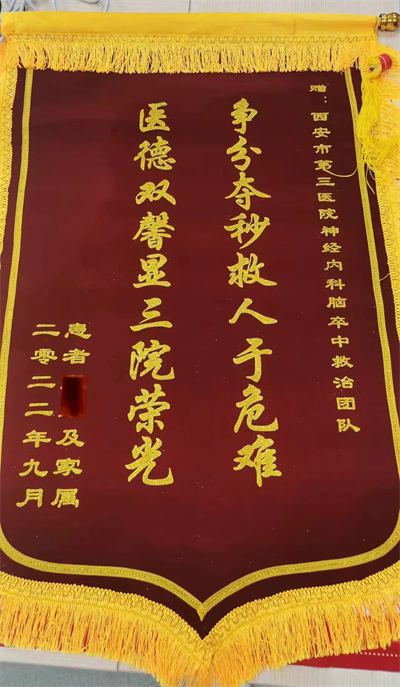 赠：西安市第三医院神经内科脑卒中救治团队
争分夺秒救人于危难
医德双馨显三院荣光
患者 及家属
二零二二年九月